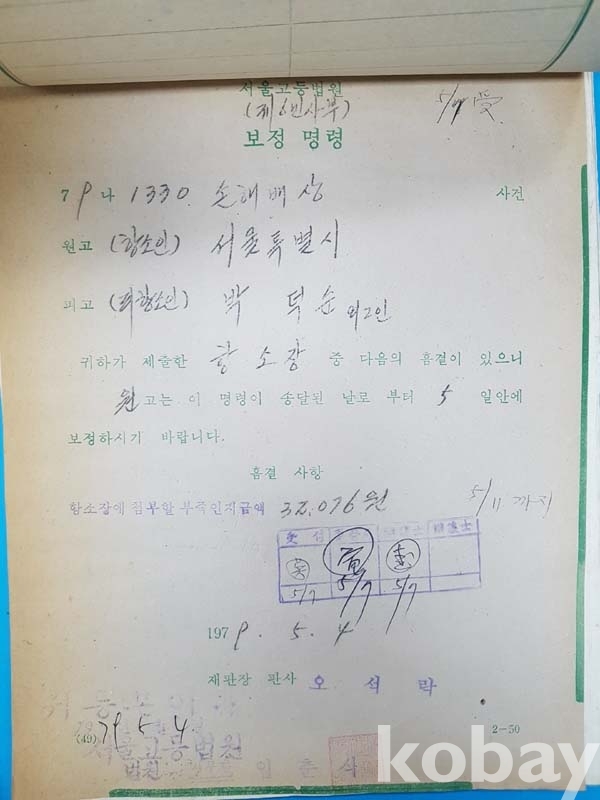 서울고등법원
(제6민사부)
5/7 受
보정 명령
79 나 1330 손해배상 사건
원고 (항소인) 서울특별시
피고 (피항소인) 박덕순 외2인
귀하가 제출한 항소장 중 다음의 흠결이 있으니
원고는 이 명령이 송달된 날로 부터 5 일안에
보정하시기 바랍니다.
흠결 사항
항소장에 첨부할 부족인지금액 32,076원 5/11 까지
5/7 5/7 5/7
1979. 5. 4
재판장 판사 오석락
79 5 4
(49) 2-50
서울고등법원
법원
kobay